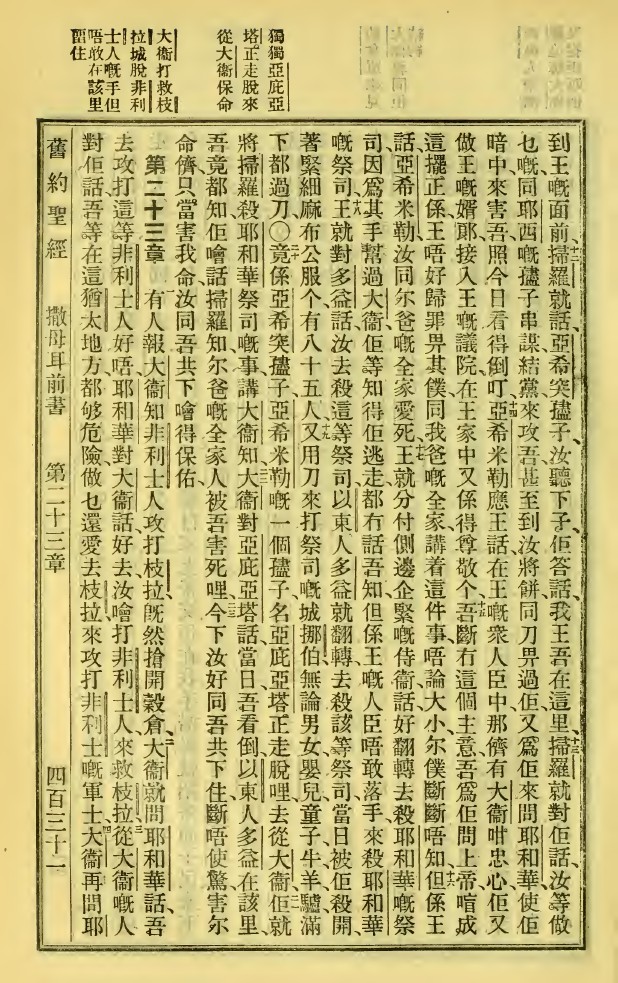 獨獨亞庇亞
塔正走脫來
從大衞保命
大衞打救枝
拉城脫非利
士人嘅手但
唔敢在該里
畱住
到王嘅面前十二掃羅就話亞希突𡥧子汝聽下子佢答話我王吾在這里十三掃羅就對佢話汝等做
乜嘅同耶西嘅𡥧子串謀結黨來攻吾甚至到汝將餅同刀畀過佢又爲佢來問耶和華使佢
暗中來害吾照今日看得倒叮十四亞希米勒應王話在王嘅衆人臣中那儕有大衞咁忠心佢又
做王嘅婿郞接入王嘅議院在王家中又係得尊敬个十五吾斷冇這個主意吾爲佢問上帝喧成
這擺正係王唔好歸罪畀其僕同我爸嘅全家講着這件事唔論大小尔僕斷斷唔知十六但係王
話亞希米勒汝同尔爸嘅全家愛死十七王就分付側邊企緊嘅侍衞話好翻轉去殺耶和華嘅祭
司因爲其手幫過大衞佢等知得佢逃走都冇話吾知但係王嘅人臣唔敢落手來殺耶和華
嘅祭司十八王就對多益話汝去殺這等祭司以東人多益就翻轉去殺該等祭司當日被佢殺開
著緊細麻布公服个有八十五人十九又用刀來打祭司嘅城挪伯無論男女嬰兒童子牛羊驢滿
下都過刀〇二十竟係亞希突𡥧子亞希米勒嘅一個𡥧子名亞庇亞塔正走脫哩去從大衞二一佢就
將掃羅殺耶和華祭司嘅事講大衞知二二大衞對亞庇亞塔話當日吾看倒以東人多益在該里
吾竟都知佢噲話掃羅知尔爸嘅全家人被吾害死哩二三今下汝好同吾共下住斷唔使驚害尔
命儕只當害我命汝同吾共下噲得保佑
第二十三章 有人報大衞知非利士人攻打枝拉旣然搶開穀倉二大衞就問耶和華話吾
去攻打這等非利士人好唔耶和華對大衞話好去汝噲打非利士人來救枝拉三從大衞嘅人
對佢話吾等在這猶太地方都够危險做乜還愛去枝拉來攻打非利士嘅軍士四大衞再問耶
舊約聖經 撒母耳前書 第二十三章 四百三十一